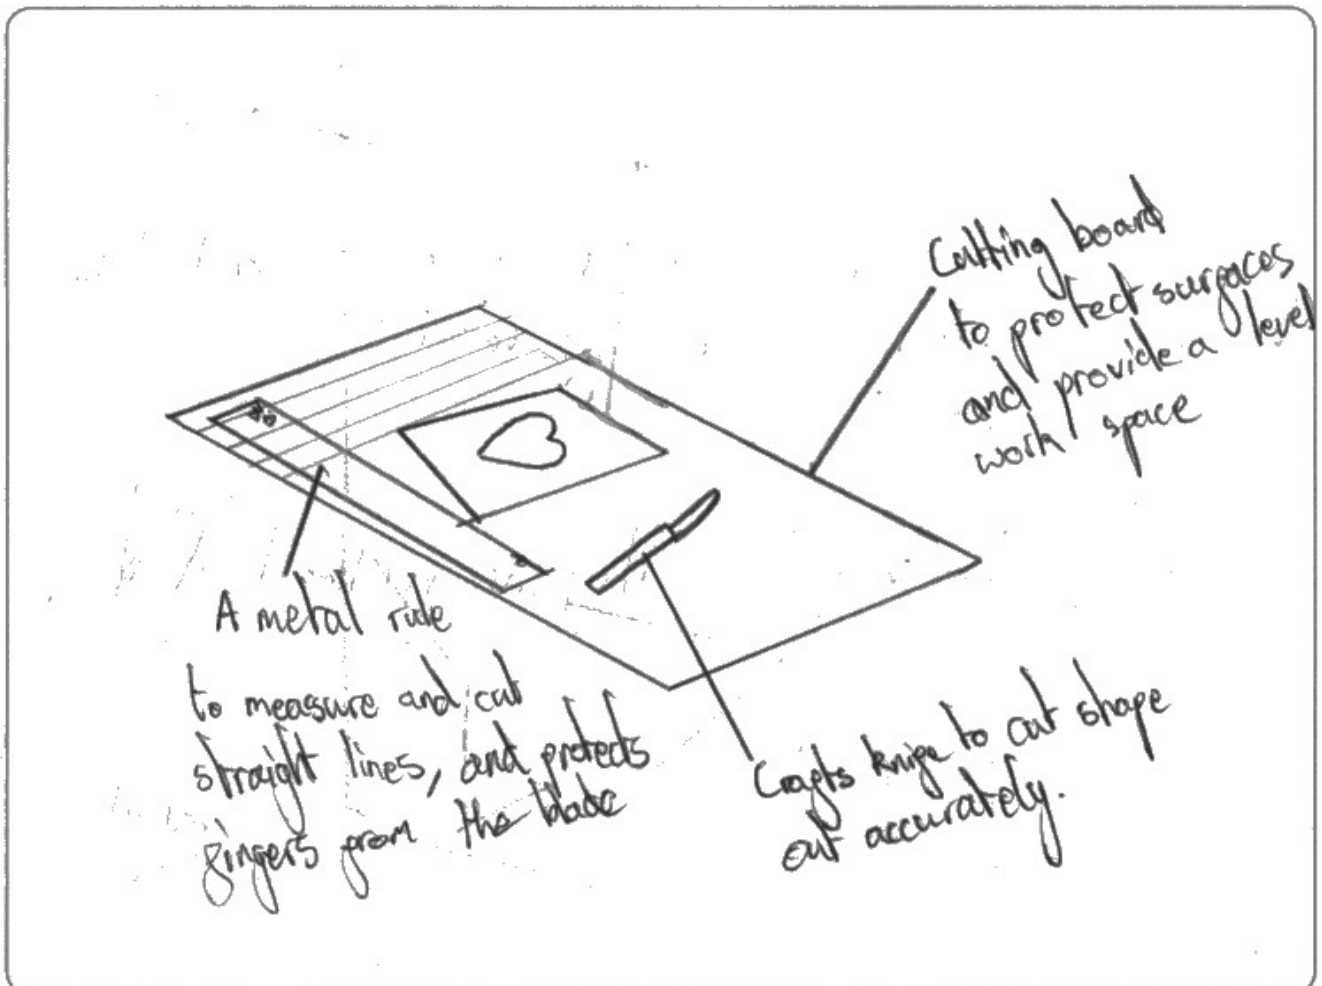 Cutting board
to protect surfaces
and provide a level
work space
A metal rule
to measure and cut
straight lines, and protects
fingers from the blade
Crafts knife to cut shape
out accurately.